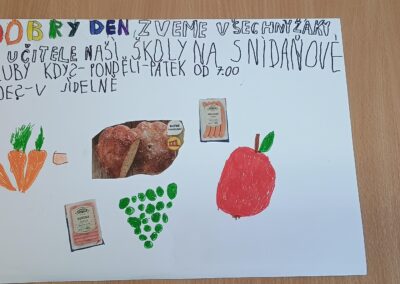 DOBRY DEN ZVEME VŠECHNY ŽÁKY
UČITELE NAŠÍ ŠKOLY NA SNÍDAŇOVÉ
KLUBY KDY?-PONDĚLI-PÁTEK OD 7.00
KDE?-V JÍDELNĚ